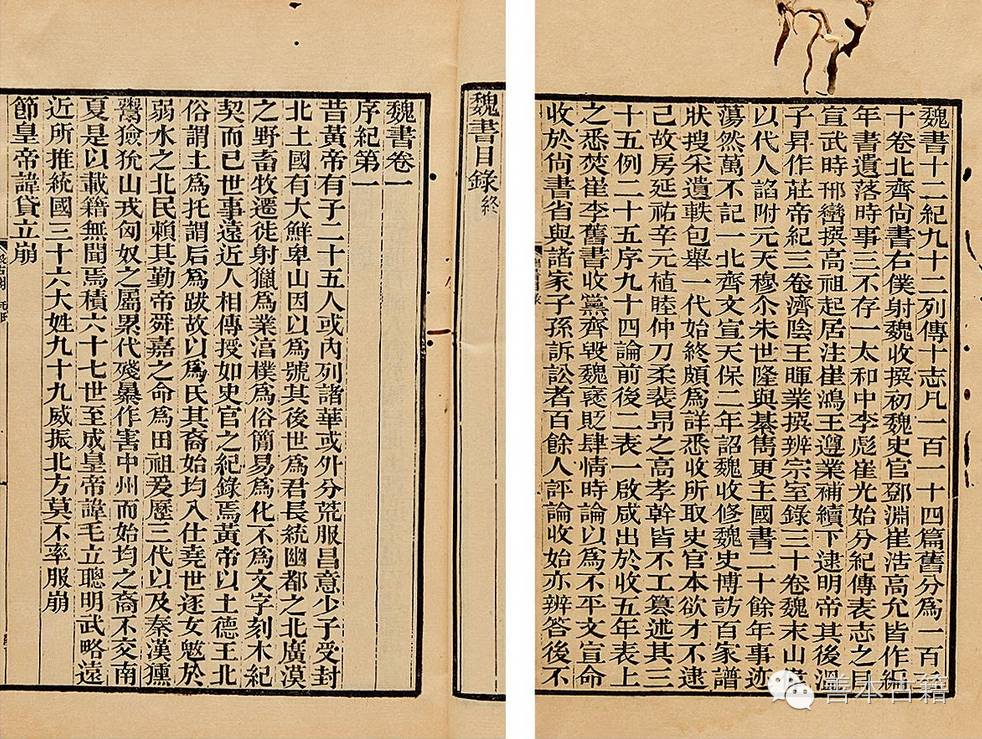 魏書十二紀九十二列傳十志凡一百一十四篇舊分為一百
十卷北齊尚書右僕射魏收撰初魏史官鄧淵崔浩高允皆作編
年書遺落時事三不存一太和中李彪崔光始分紀傳表志之目
宣武時邢巒撰高祖起居注崔鴻王遵業補續下逮明帝其後溫
子昇作莊帝紀三卷濟陰王暉業撰辨宗室錄三十卷魏末山
以代人諂附元天穆尒朱世隆與綦雋更主國書二十餘年事迹
蕩然萬不記一北齊文宣天保二年詔魏收修魏史博訪百家譜
狀搜采遺軼包舉一代始終頗為詳悉收所取史官本欲才不逮
己故房延祐辛元植睦仲刀柔裴昂之高孝幹皆不工纂述其三
十五例二十五序九十四論前後二表一啟咸出於收五年表上
之悉焚崔李舊書收黨齊毀魏褒貶肆情時論以為不平文宣命
收於尚書省與諸家子孫訴訟者百餘人評論收始亦辨答後不
魏書目錄終
魏書卷一
序紀第一
昔黃帝有子二十五人或內列諸華或外分荒服昌意少子受封
北土國有大鮮卑山因以為號其後世為君長統幽都之北廣漠
之野畜牧遷徙射獵為業淳樸為俗簡易為化不為文字刻木紀
契而已世事遠近人相傳授如史官之紀錄焉黃帝以土德王北
俗謂土為托謂后為跋故以為氏其裔始均入仕堯世逐女魃於
弱水之北民賴其勤帝舜嘉之命為田祖爰歷三代以及秦漢獯
鬻獫狁山戎匈奴之屬累代殘暴作害中州而始均之裔不交南
夏是以載籍無聞焉積六十七世至成皇帝諱毛立聰明武略遠
近所推統國三十六大姓九十九威振北方莫不率服崩
節皇帝諱貸立崩
善本古籍